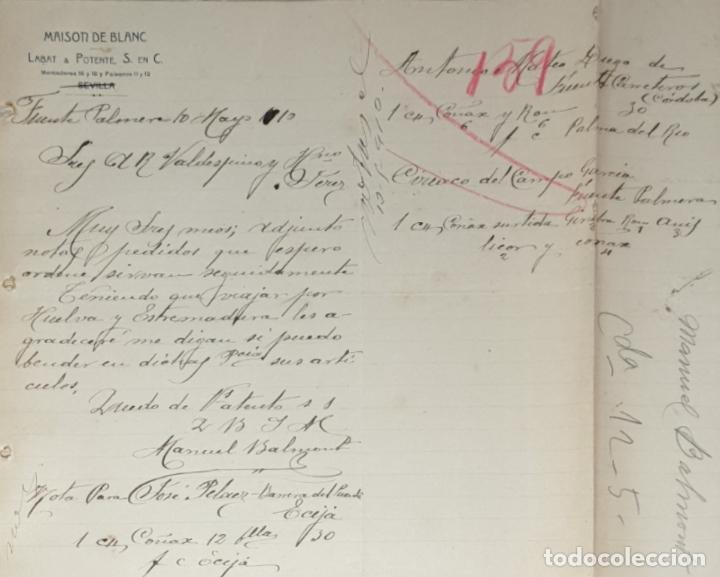 MAISON DE BLANC
LABAT & POTENTE, S. EN C.
Mercaderes 16 y 18 y Palsanos 11 y 13
SEVILLA
Fuente Palmera 10 Mayo 910
Sres A R Valdespino y Hno
Jerez
Muy Sres mios; adjunto
nota pedidos que espero
ordene sirvan seguidamente
Teniendo que viajar por
Huelva y Estremadura les a-
gradeceré me digan si puedo
bender en dichas Pcias sus artí-
culos.
Quedo de Vs atento s s
Q B S M
Manuel Balmont
Nota Para José Pelaez Barrera del
Ecija
1 cn Coñax 12 blla 30
f c Ecija
159
Antonio Mateo Diego de
Fuente Carreteros
(Cordoba)
1 cn Coñax y Ron 30
6 6
f c Palma del Rio
Ciriaco del Campo Garcia
Fuente Palmera
1 cn Coñax surtida Ginebra Ron Anis
2 1 3
licor y coñax
2 4
Manuel Balmont
Cda 12-5-
todocoleccion